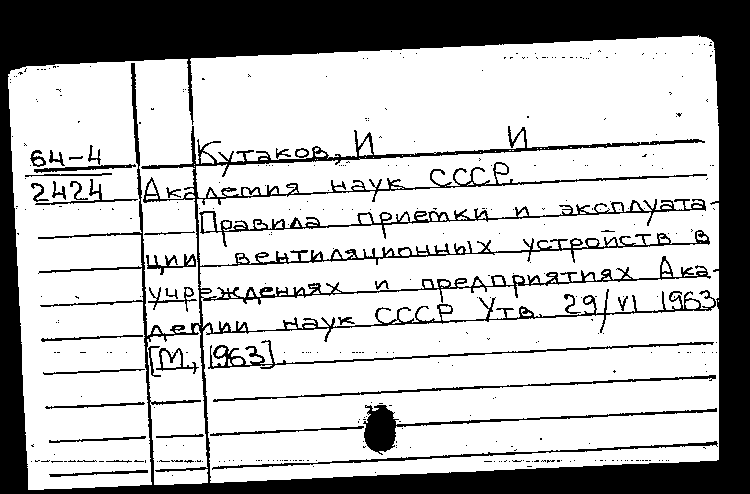 64-4 Кутаков, И И
2424 Академия наук СССР.
Правила приемки и эксплуата-
ции вентиляционных устройств в
учреждениях и предприятиях Ака-
демии наук СССР Утв. 29/VI 1963.
[М., 1963].